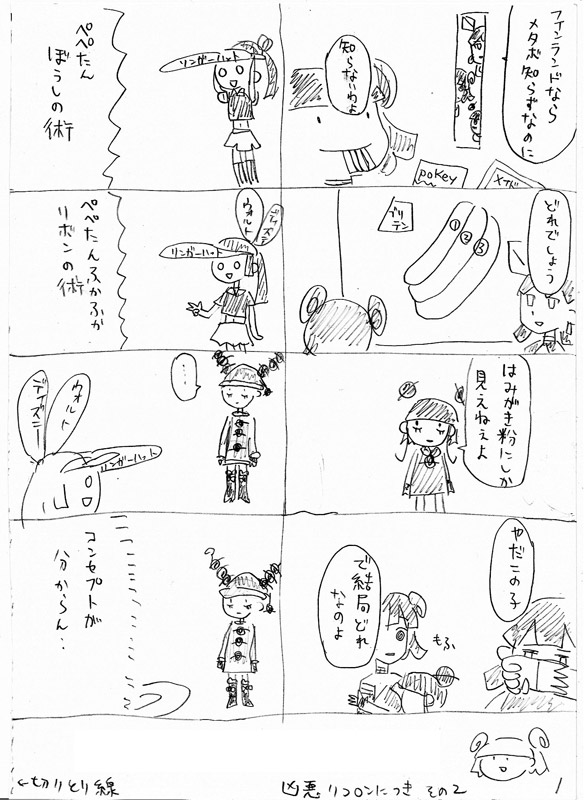 フィンランドなら
メタボ知らずなのに
知らないわよ
pokey
どれでしょう
ブリテン
①
②
③
はみがき粉にしか
見えねぇよ
やだこの子
もふ
で結局どれ
なのよ
ぺぺたん
ぼうしの
術
リンガーハット
ぺぺたんふかふか
リボンの
術
ウォルト
ディズニー
リンガーハット
…
ウォルト
ディズニー
リンガーハット
コンセプトが
分からん‥
←切りとり線
凶悪リコロンにっき その2
1